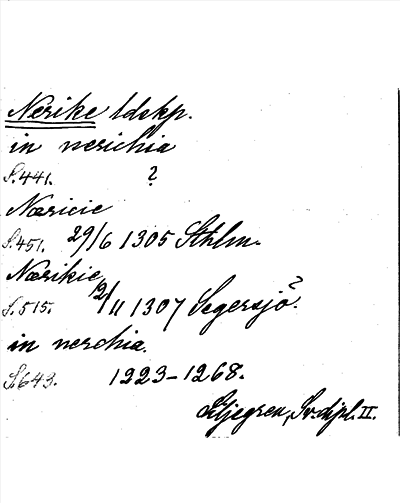 Nerike ldskp.
in nerichia
S.441. ?
Næricie
S.451. 29/6 1305 Sthlm.
Nærikie
S.515. 2/11 1307 Segersjö?
in nerchia.
S.643. 1223-1268.
Liljegren, Sv. dipl. II.